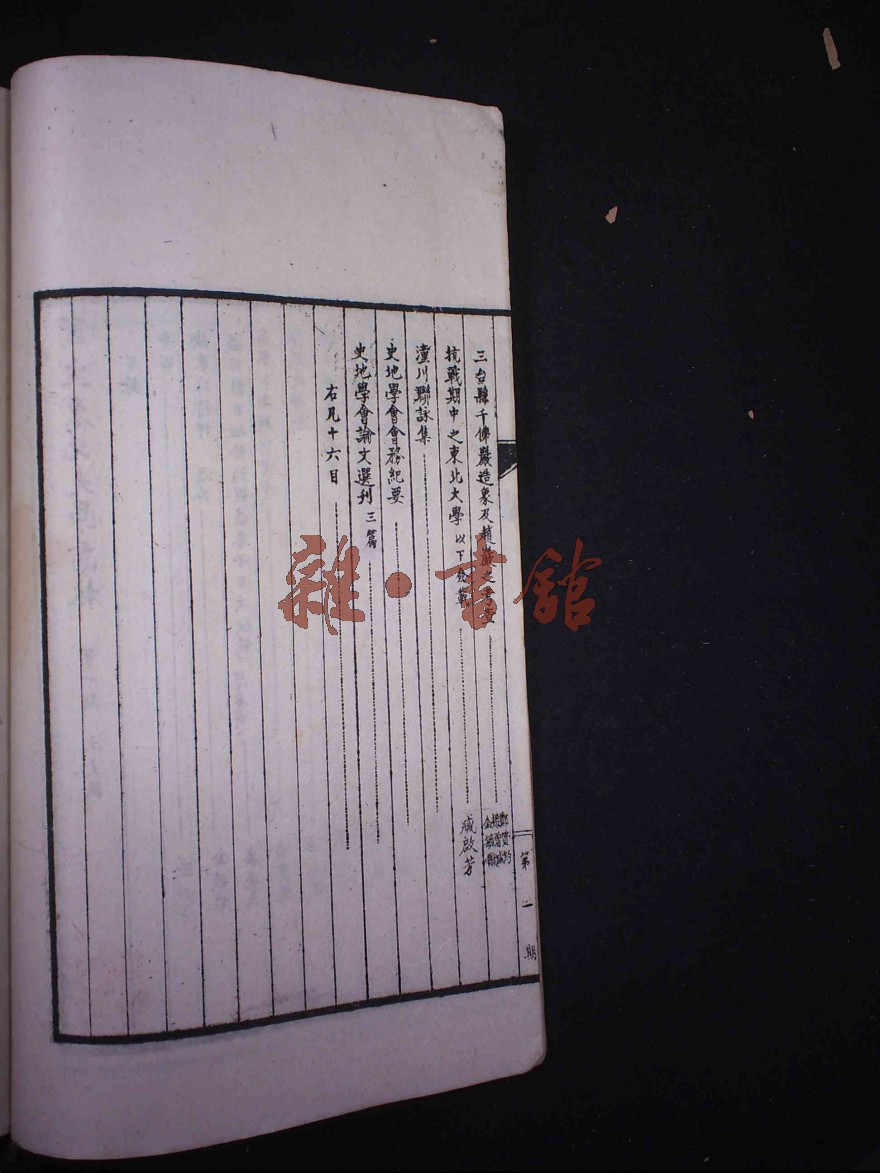 三台縣千佛巖造象及趙巖之
抗戰期中之東北大學 以下 臧啟芳
潼川聯詠集
史地學會會務紀要
史地學會論文選刊 三篇
右凡十六目
第一期
雜·書館